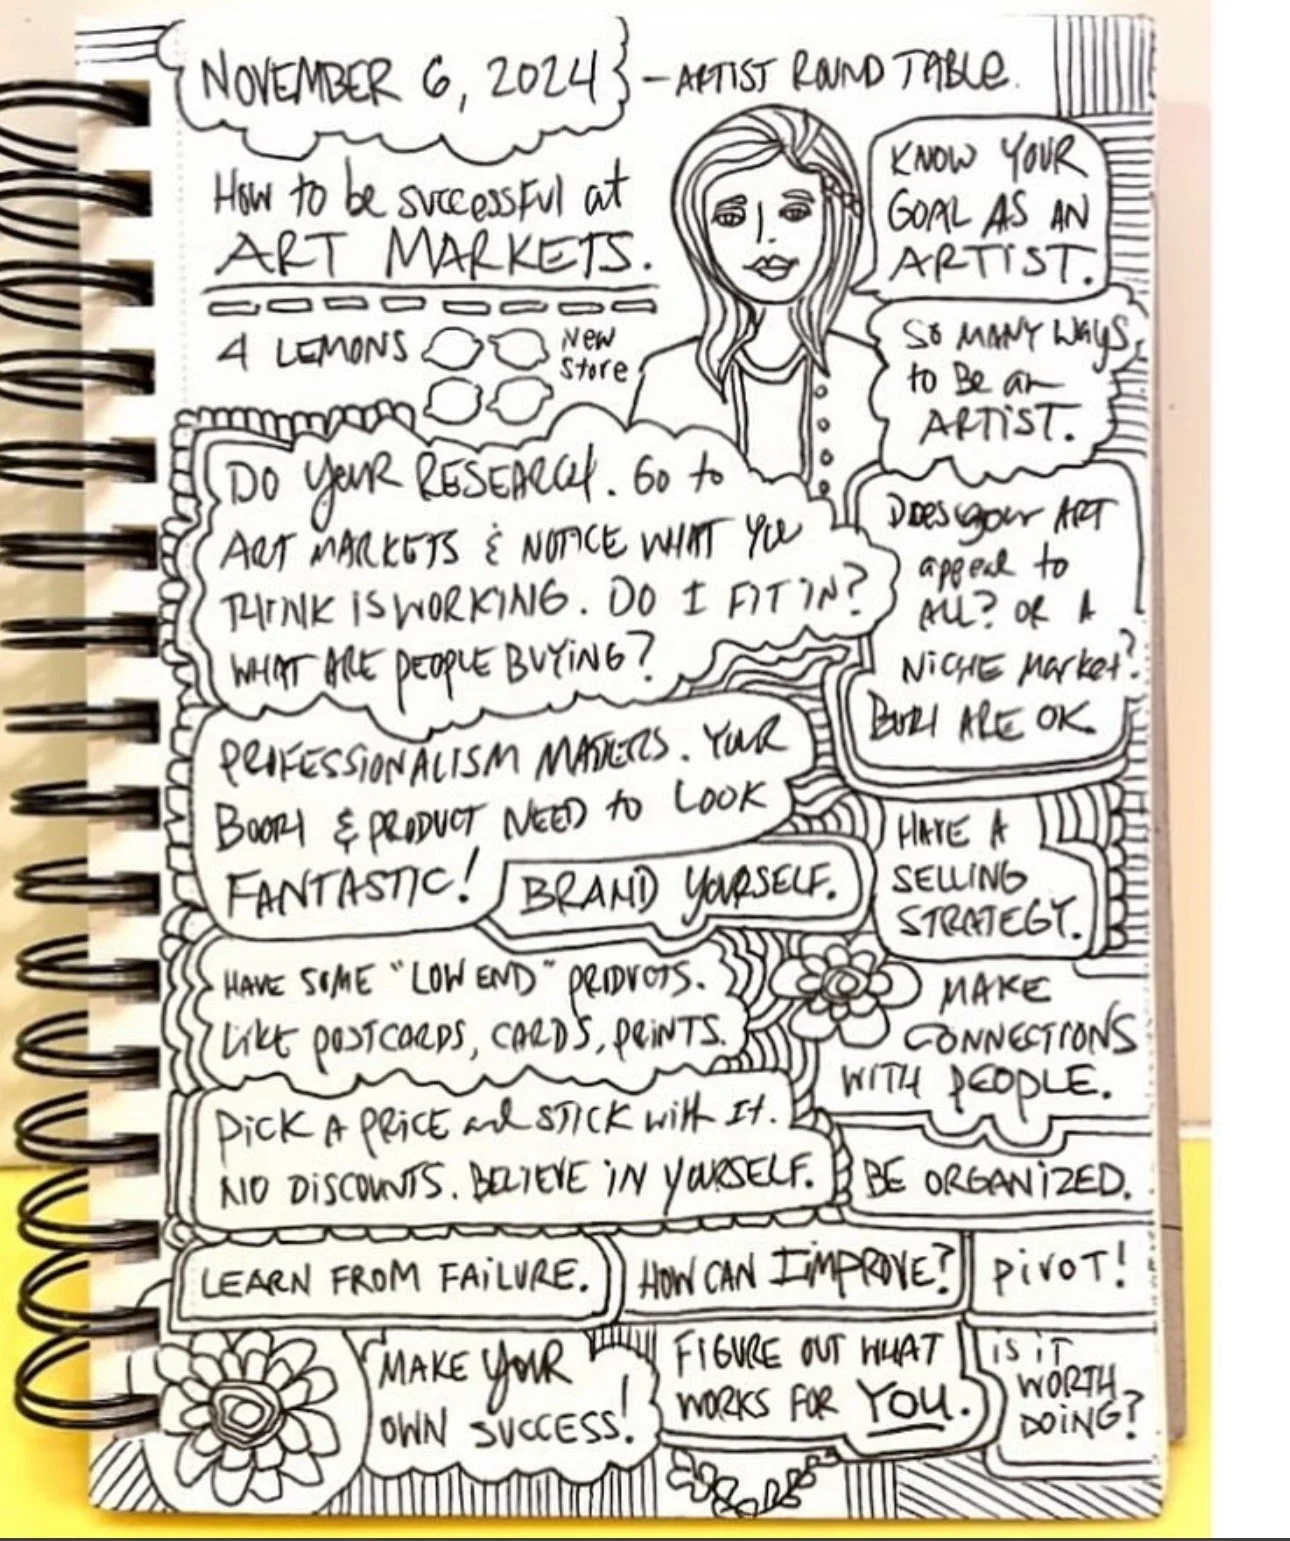 NOVEMBER 6, 2024
- ARTIST ROUND TABLE.
How to be successful at
ART MARKETS.
4 LEMONS
New
Store
KNOW YOUR
GOAL AS AN
ARTIST.
SO MANY WAYS
to Be an
ARTIST.
DO YOUR RESEARCH. Go to
ART MARKETS & NOTICE WHAT YOU
THINK IS WORKING. DO I FIT IN?
WHAT ARE PEOPLE BUYING?
Does your ART
appeal to
ALL? OR A
NICHE Market?
BOTH ARE OK.
PROFESSIONALISM MATTERS. YOUR
BOOTH & PRODUCT NEED to LOOK
FANTASTIC!
BRAND YOURSELF.
HAVE A
SELLING
STRATEGY.
HAVE SOME "LOW END" PRODUCTS.
LIKE POSTCARDS, CARDS, PRINTS.
MAKE
CONNECTIONS
WITH PEOPLE.
PICK A PRICE and STICK with It.
NO DISCOUNTS. BELIEVE IN YOURSELF.
BE ORGANIZED.
LEARN FROM FAILURE.
HOW CAN I IMPROVE?
PIVOT!
MAKE YOUR
OWN SUCCESS!
FIGURE OUT WHAT
WORKS FOR YOU.
IS IT
WORTH
DOING?